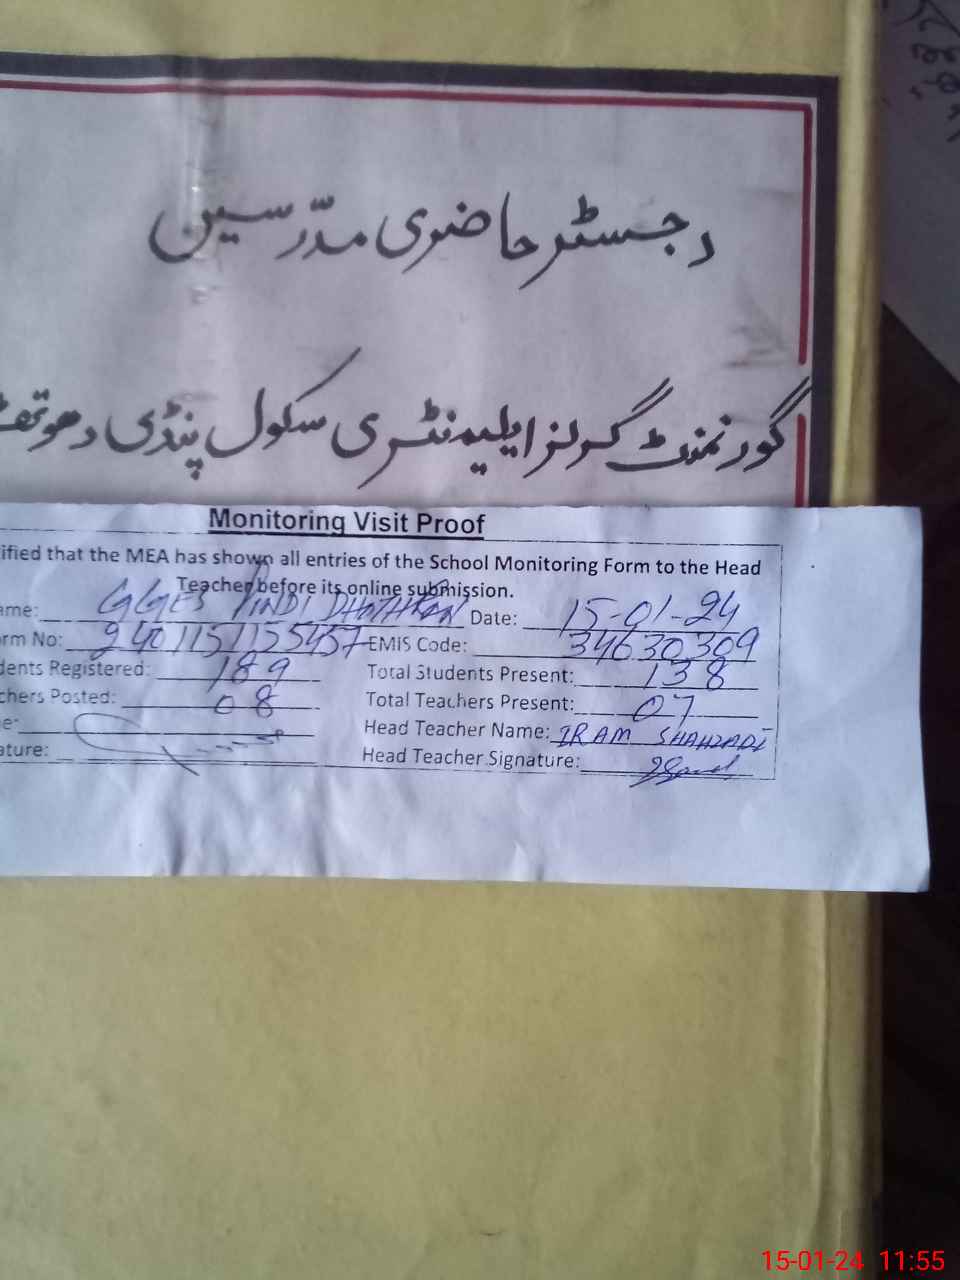 رجسٹر حاضری مدرسین
گورنمنٹ گرلز ایلیمنٹری سکول پنڈی دھوتھڑ
Monitoring Visit Proof
ified that the MEA has shown all entries of the School Monitoring Form to the Head
Teacher before its online submission.
ame: GGES PINDI DHOTHRAN Date: 15-01-24
orm No: 2401151155457 EMIS Code: 34630309
dents Registered: 189 Total Students Present: 138
chers Posted: 08 Total Teachers Present: 07
e: Head Teacher Name: IRAM SHAHZADI
ature: Head Teacher Signature:
15-01-24 11:55